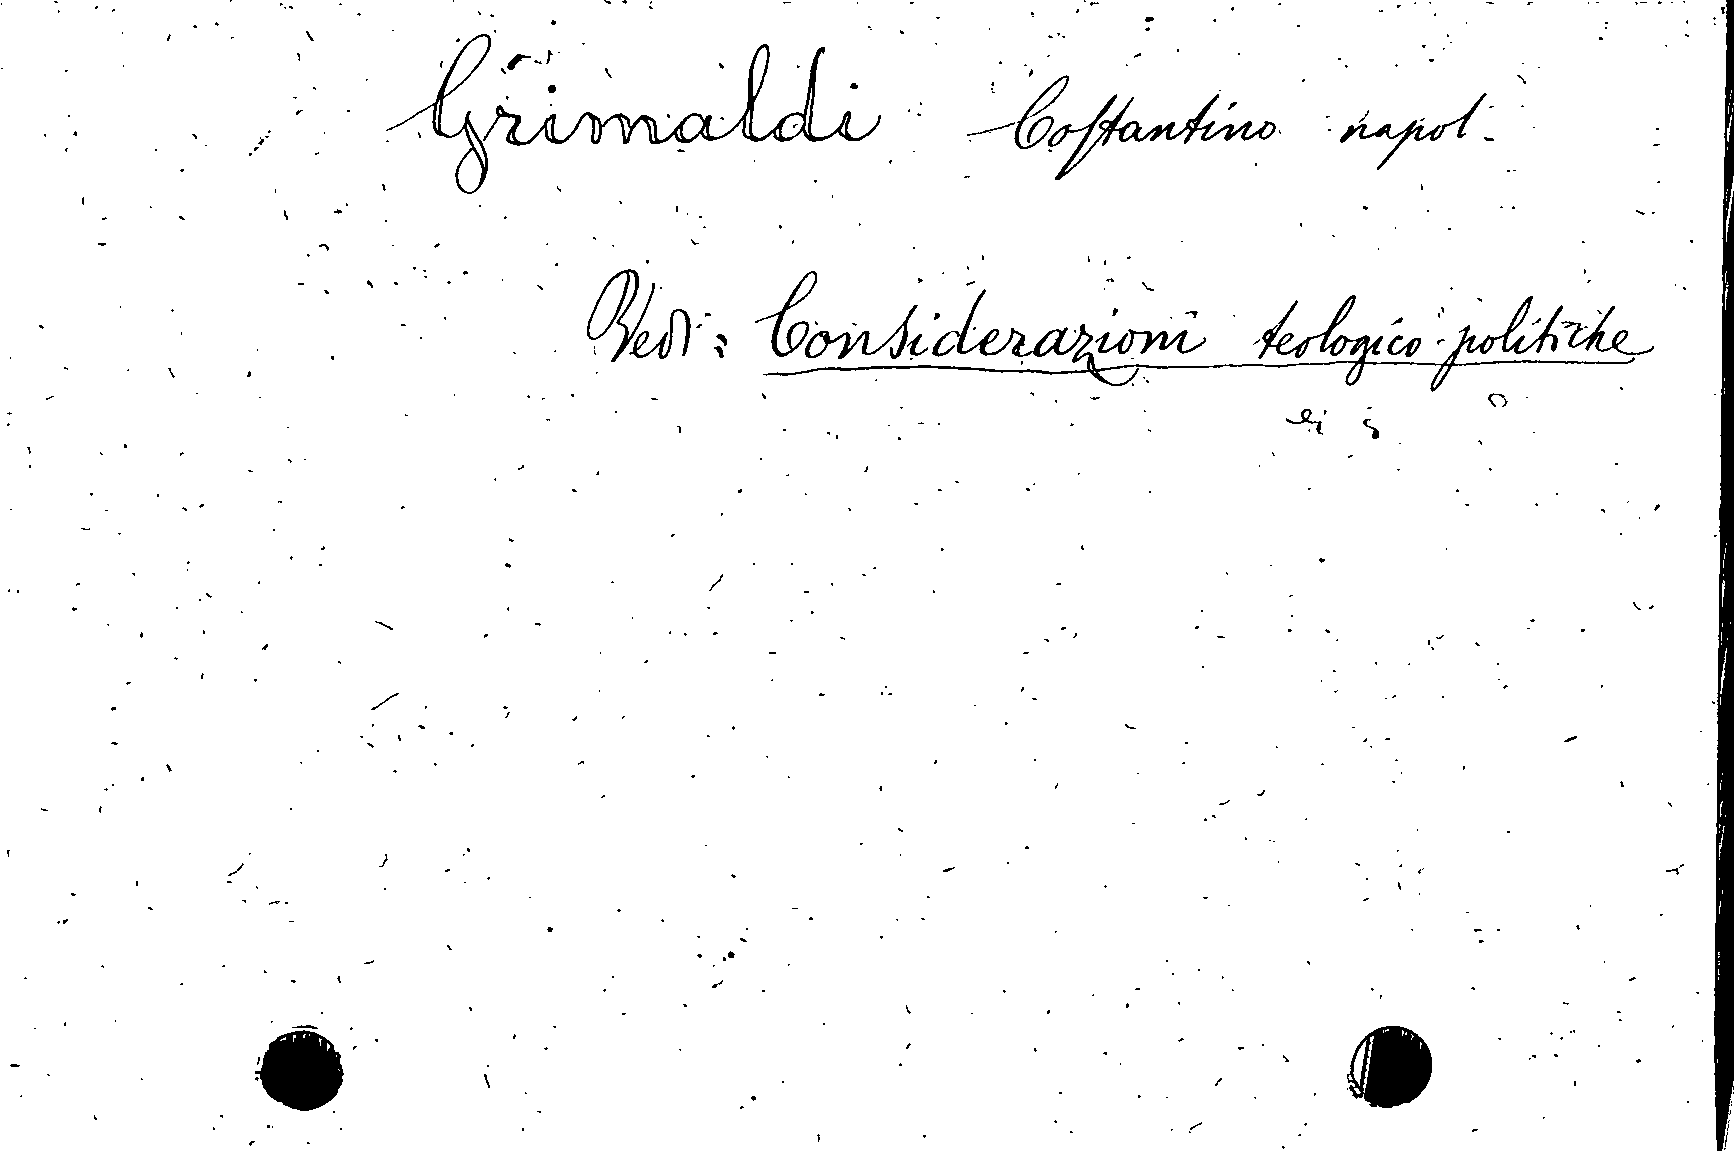 Grimaldi Costantino napol.
Vedi: Considerazioni teologico-politiche